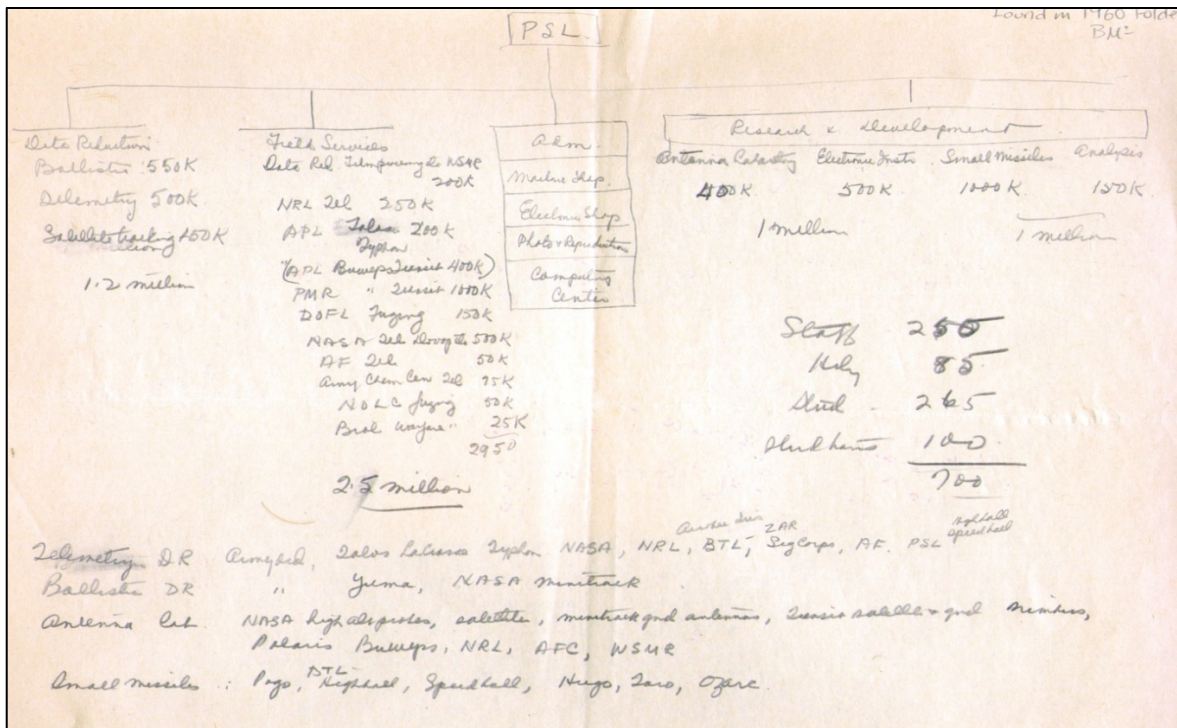 Found in 1960 Folde
BM
PSL
Data Reduction
Ballistic 550K
Telemetry 500K
Satellite tracking 150K
1.2 million
Field Services
Data Red. WSMR
200K
NRL Tel 250K
APL Talos 200K
Typhon
(APL Buweps Transit 400K)
PMR " Transit 1000K
DOFL Fuzing 150K
NASA Tel 500K
AF Tel 50K
Army Chem Cen Tel 75K
NOLC Fuzing 50K
25K
2950
2.5 million
Adm
Machine Shop
Electronic Shop
Photo & Reproduction
Computing
Center
Research & Development
Antenna Laboratory Electronic Instr Small Missiles Analysis
400K 500K 1000K 150K
1 million 1 million
Staff 250
85
Stud - 265
100
700
ZAR
Telemetry DR Talos Typhon NASA, NRL, BTL, Sig Corps, AF. PSL speedball
Ballistic DR " Yuma, NASA minitrack
Antenna Lab. NASA high alt probes, satellites, minitrack gnd antennas, Transit satellite & gnd
Polaris Buweps, NRL, AFC, WSMR
BTL
Small missiles : Pogo, Highball, Speedball, Hugo, Ozarc